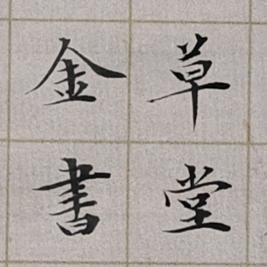 草堂
金書